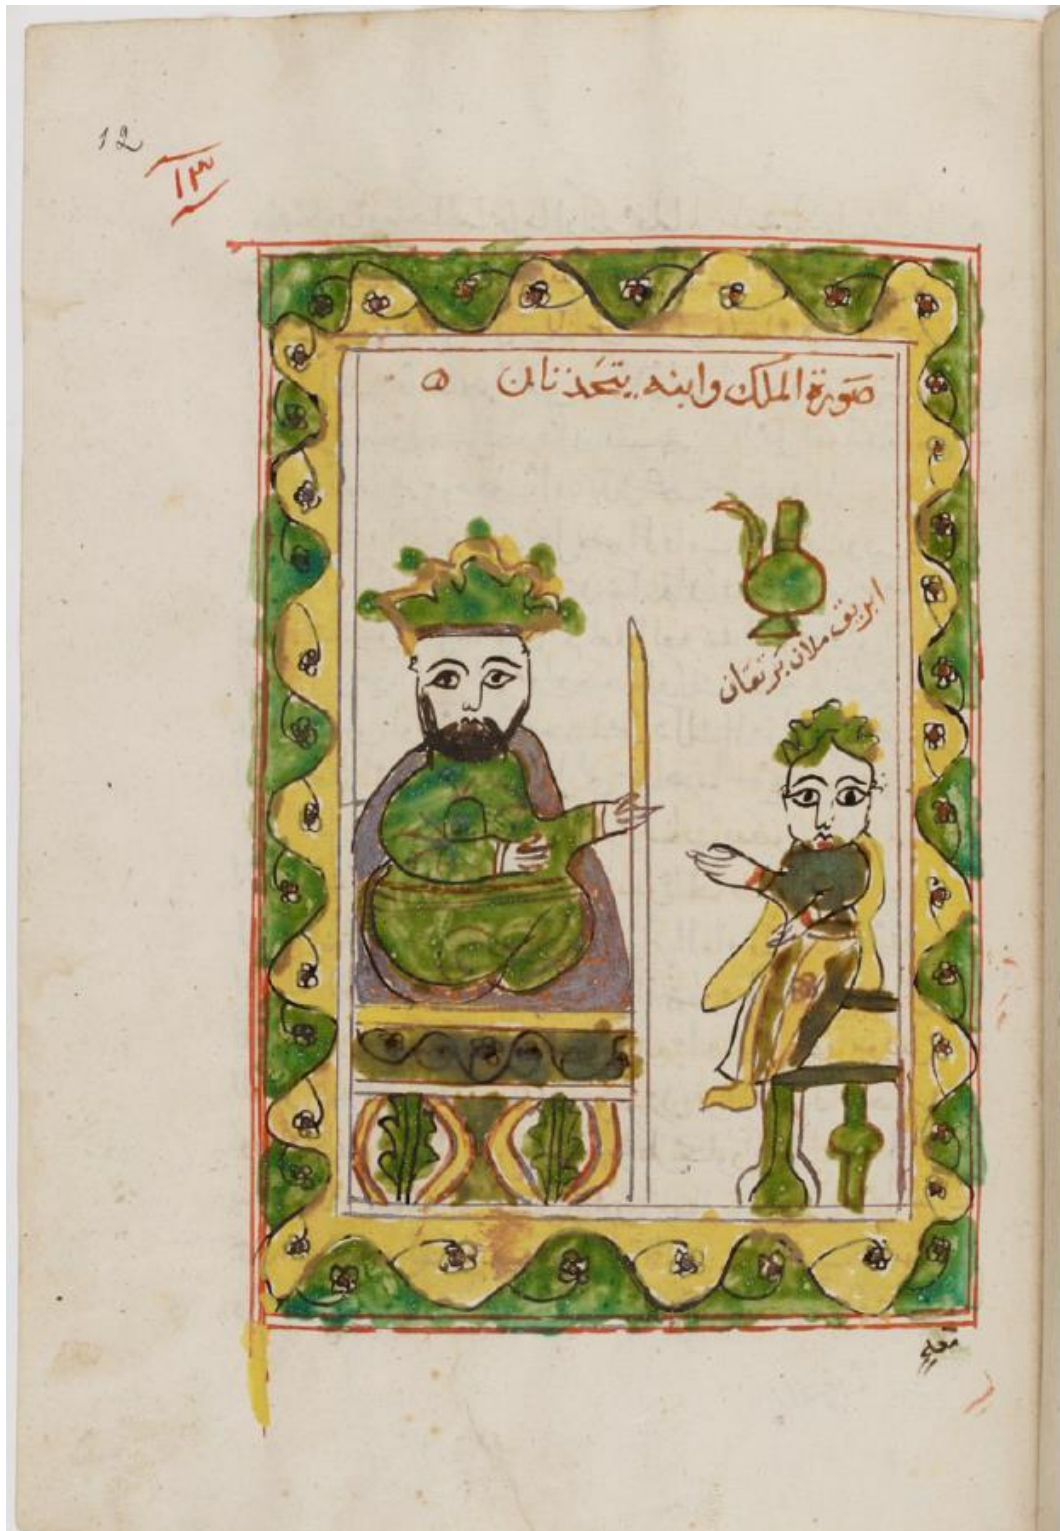 12
١٣
صورة الملك وابنه يتحدثان ه
ابريق ملان برتقان